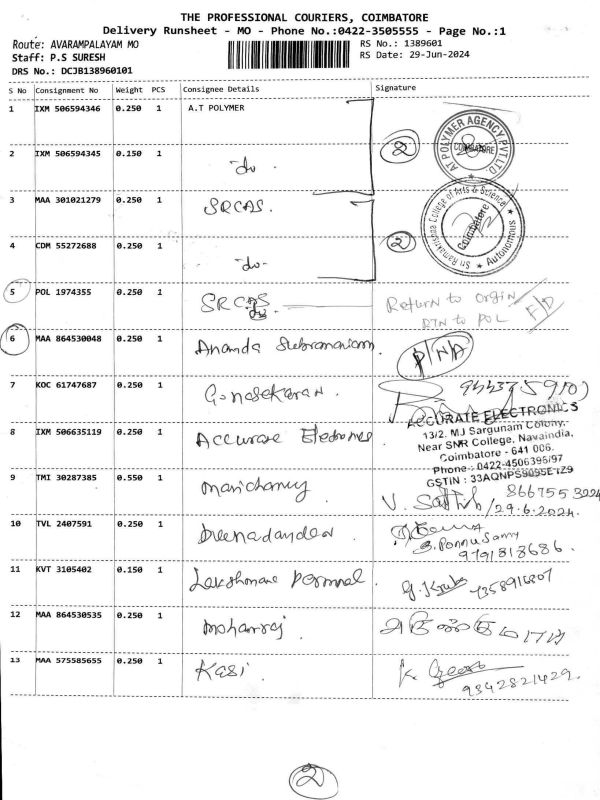 THE PROFESSIONAL COURIERS, COIMBATORE
Delivery Runsheet - MO - Phone No.:0422-3505555 - Page No.:1
Route: AVARAMPALAYAM MO
RS No.: 1389601
Staff: P.S SURESH
RS Date: 29-Jun-2024
DRS No.: DCJB138960101
S No Consignment No Weight PCS Consignee Details Signature
1 IXM 506594346 0.250 1 A.T POLYMER
AT POLYMER AGENCY PVT LTD.
COIMBATORE
2
2 IXM 506594345 0.150 1 do.
3 MAA 301021279 0.250 1 SRCAS.
Sri Ramakrishna College of Arts & Science
Coimbatore
Autonomous
2
4 CDM 55272688 0.250 1 do.
5 POL 1974355 0.250 1 SRCAS
do
Return to Orgin
RTN to POL
F/D
6 MAA 864530048 0.250 1 Ananda Subramaniam.
P/NA
7 KOC 61747687 0.250 1 Gunasekaran.
8 IXM 506635119 0.250 1 Accurate Electronics
ACCURATE ELECTRONICS
13/2. MJ Sargunam Colony,
Near SNR College, Navaindia,
Coimbatore - 641 006.
Phone : 0422-4506396/97
GSTIN :
9 TMI 30287385 0.550 1 Marichamy
V. Sathish 8667553224
/29.6.2024.
10 TVL 2407591 0.250 1 Deenadayalan
B. Ponnusamy
9791818686.
11 KVT 3105402 0.150 1 Lakshmana Perumal.
7358916807
12 MAA 864530535 0.250 1 Mohanraj
13 MAA 575585655 0.250 1 Kasi.
K.
9342821429.
2